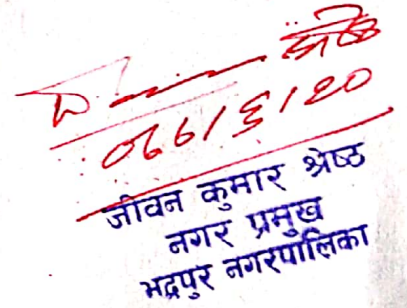 श्रेष्ठ
०६६/६/२०
जीवन कुमार श्रेष्ठ
नगर प्रमुख
भद्रपुर नगरपालिका